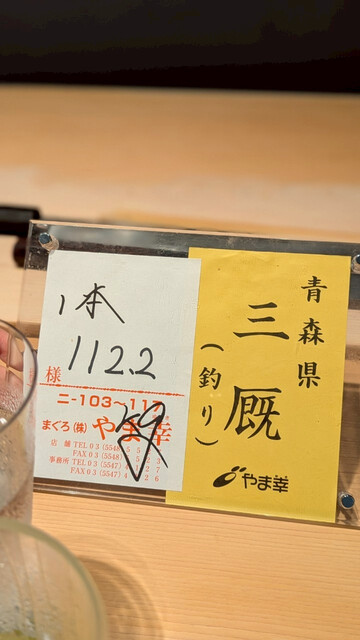 1本
112.2
様
ニ-103〜11
まぐろ(株)やま幸
店舗 TEL 03 (5548)
FAX 03 (5548)
事務所 TEL 03 (5547)
FAX 03 (5547)
青森県
三厩
(釣り)
やま幸